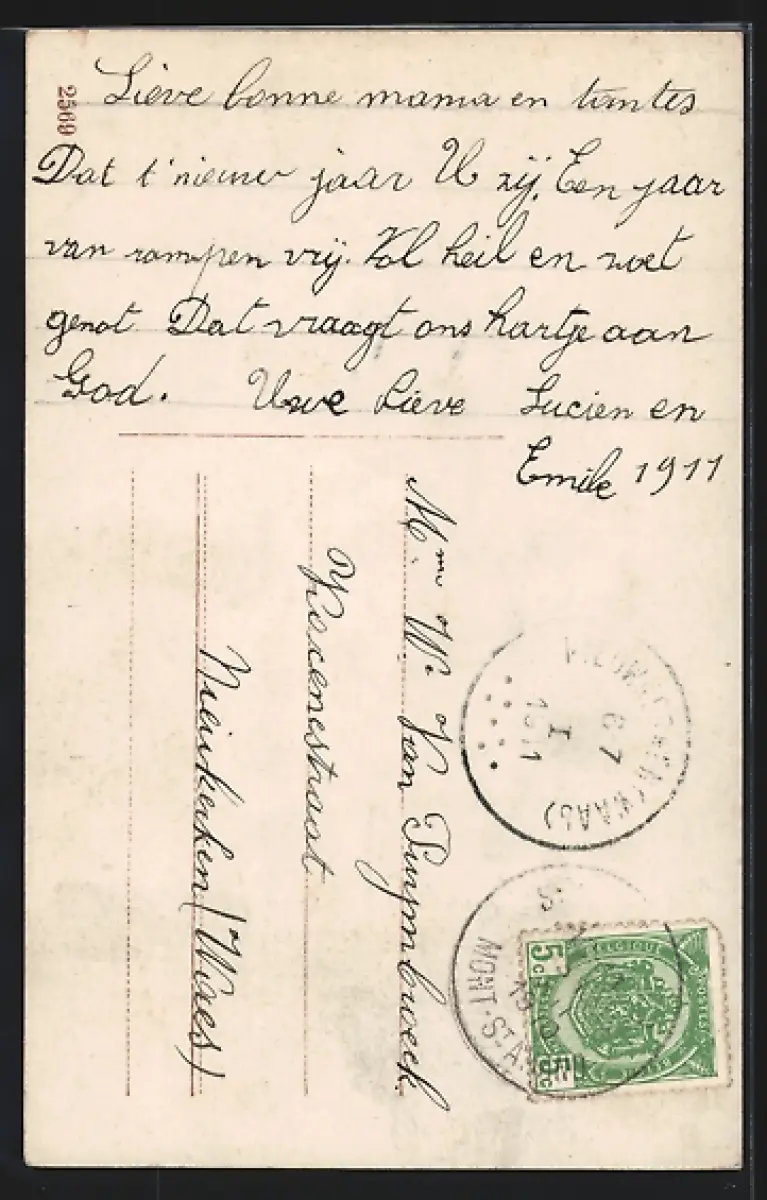 2569
Lieve bonne mama en tantes
Dat t'nieuw jaar U zij. Een jaar
van rampen vrij. Vol heil en zoet
genot Dat vraagt ons hartje aan
God. Uwe Lieve Lucien en
Emile 1911
Mme We Van Puymbroeck
Nieukerken (Waes)
(WAAS)
I
MONT-ST-A
5c
BELGIQUE
POSTES
5c